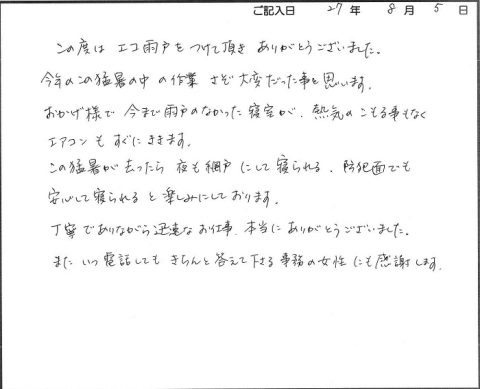 ご記入日 27年 8月 5日
この度は エコ雨戸をつけて頂き ありがとうございました。
今年のこの猛暑の中 の作業 さぞ大変だった事と思います。
おかげ様で 今まで雨戸のなかった寝室が、熱気のこもる事もなく
エアコンも すぐにききます。
この猛暑が去ったら 夜も網戸にして寝られる、防犯面でも
安心して寝られると楽しみにしております。
丁寧でありながら迅速なお仕事、本当にありがとうございました。
また いつ電話しても きちんと答えて下さる事務の女性にも感謝します。